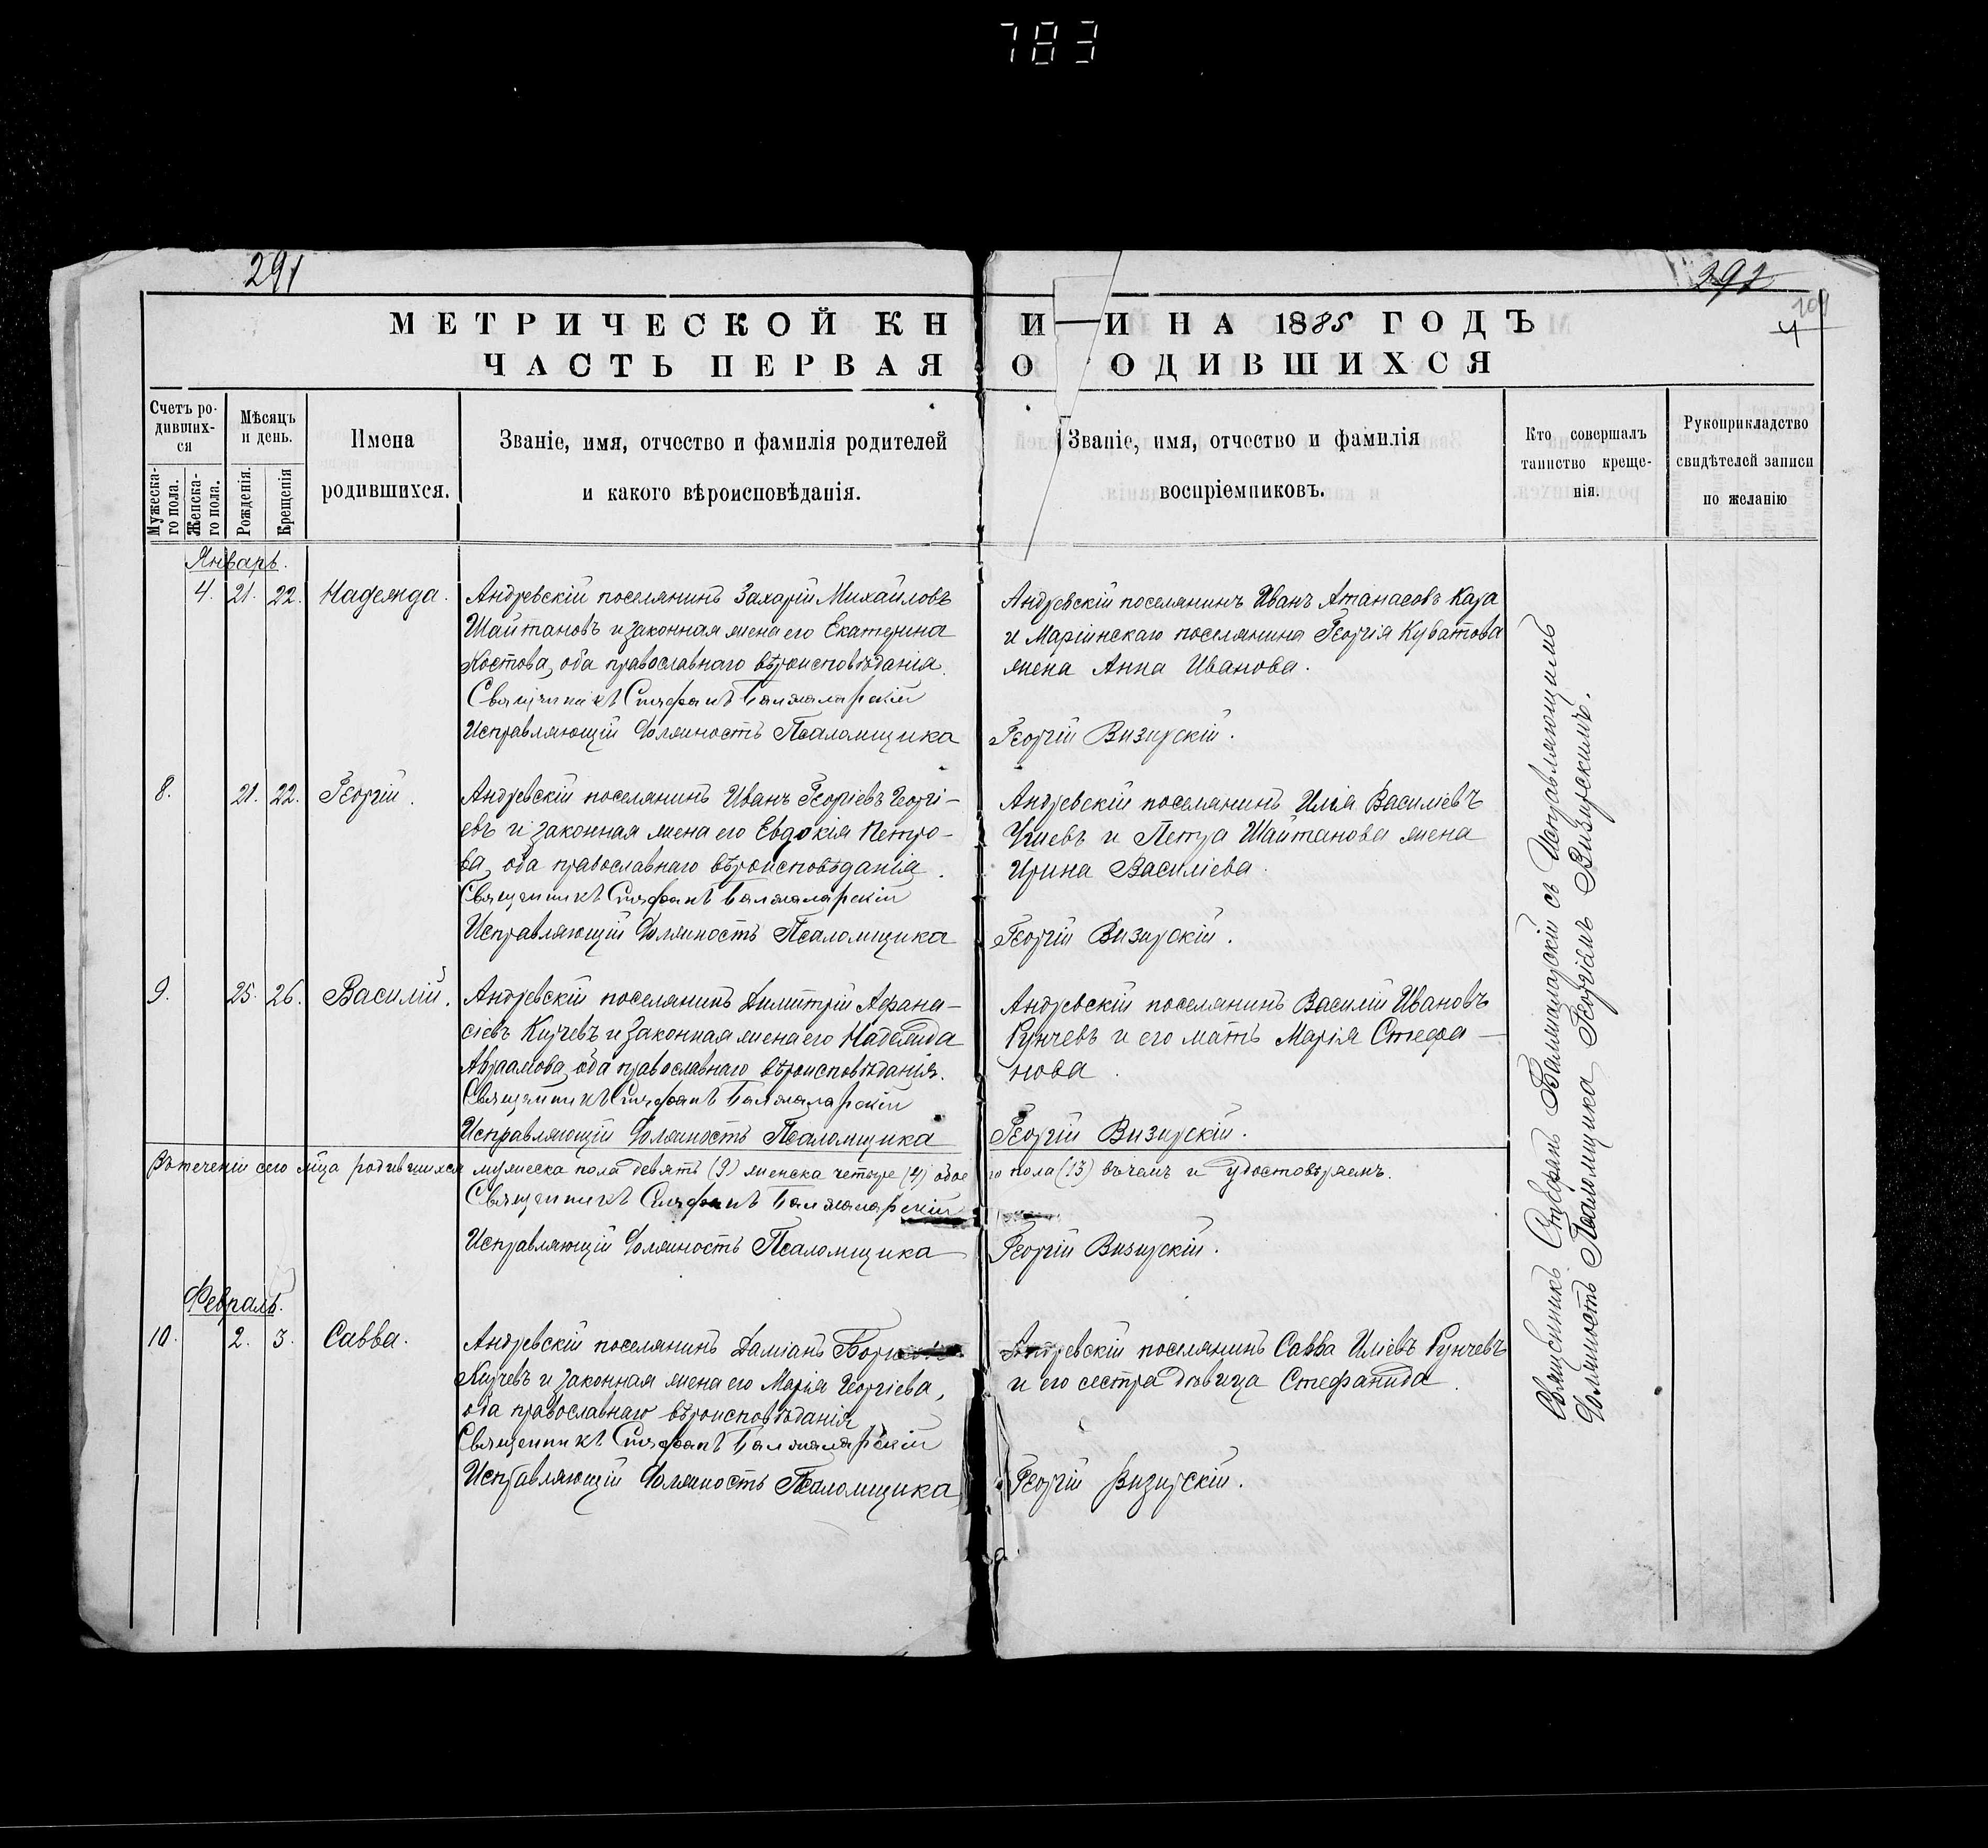 783
291
292
109
4
МЕТРИЧЕСКОЙ КН И—И НА 1885 ГОДЪ
ЧАСТЬ ПЕРВАЯ О ОДИВШИХСЯ
Счетъ ро-
дивших-
ся
Мужеска-
го пола.
Женска-
го пола.
Мѣсяцъ
и день.
Рожденія.
Крещенія
Имена
родившихся.
Званіе, имя, отчество и фамилія родителей
и какого вѣроисповѣданія.
Званіе, имя, отчество и фамилія
воспріемниковъ.
Кто совершалъ
таинство креще-
нія.
Рукоприкладство
свидѣтелей записи
по желанію
Январь.
4. 21. 22. Надежда.
Андревскій поселянинъ Захарій Михайловъ
Шайтановъ и законная жена его Екатерина
Костова, оба православнаго вѣроисповѣданія.
Священникъ Стефанъ Балжаларскій
Исправляющій должность Псаломщика
Андревскій поселянинъ Иванъ Атанасовъ Кара
и Маріинскаго поселянина Георгія Кубатова
жена Анна Иванова.
Георгій Визирскій.
8. 21. 22. Георгій.
Андревскій поселянинъ Иванъ Георгіевъ Георгі-
евъ и законная жена его Евдокія Петро-
ва, оба православнаго вѣроисповѣданія.
Священникъ Стефанъ Балжаларскій
Исправляющій должность Псаломщика
Андревскій поселянинъ Илія Василіевъ
и Петра Шайтанова жена
Ирина Василіева.
Георгій Визирскій.
9. 25. 26. Василій.
Андревскій поселянинъ Димитрій Афана-
сіевъ Кирчевъ и законная жена его Надежда
Авраамова, оба православнаго вѣроисповѣданія.
Священникъ Стефанъ Балжаларскій
Исправляющій должность Псаломщика
Андревскій поселянинъ Василій Ивановъ
Рунчевъ и его мать Марія Стефа-
нова.
Георгій Визирскій.
Въ теченіи сего м-ца родившихся мужеска пола девять (9) женска четыре (4) обое го пола (13) въ чемъ и удостовѣряемъ.
Священникъ Стефанъ Балжаларскій
Исправляющій должность Псаломщика Георгій Визирскій.
Февраль.
10. 2. 3. Савва.
Андревскій поселянинъ Даміанъ
Кирчевъ и законная жена его Марія Георгіева,
оба православнаго вѣроисповѣданія
Священникъ Стефанъ Балжаларскій
Исправляющій должность Псаломщика
Андревскій поселянинъ Савва Иліевъ Рунчевъ
и его сестра дѣвица Стефанида.
Георгій Визирскій.
Священникъ Стефанъ Балжаларскій съ Исправляющимъ
должность Псаломщика Георгіемъ Визирскимъ.